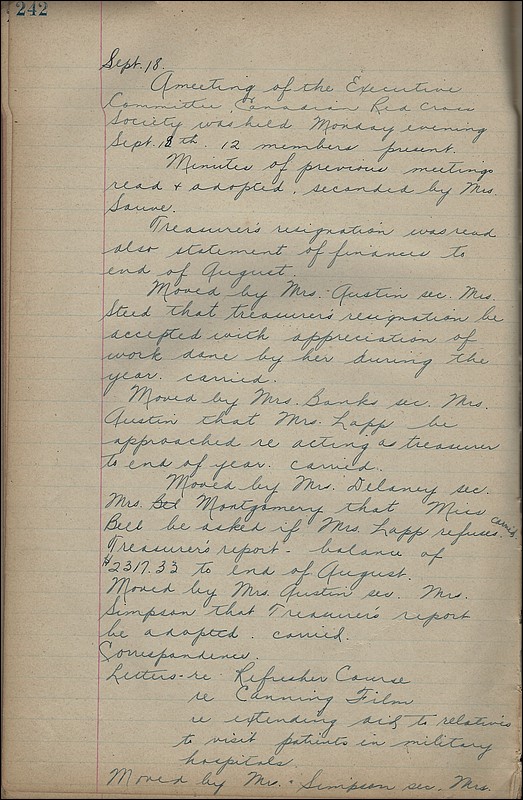 242
Sept. 18.
A meeting of the Executive
Committee, of Canadian Red Cross
Society was held Monday evening
Sept. 18th. 12 members present.
Minutes of previous meetings
read & adopted, seconded by Mrs.
Sauve.
Treasurer's resignation was read
also statement of finances to
end of August.
Moved by Mrs. Austin sec. Mrs.
Steed that treasurer's resignation be
accepted with appreciation of
work done by her during the
year. carried.
Moved by Mrs. Banks sec. Mrs.
Austin that Mrs. Lapp be
approached re acting as treasurer
to end of year. carried.
Moved by Mrs. Delaney sec.
Mrs. Montgomery that Miss
Bell be asked if Mrs. Lapp refuses. carried.
Treasurer's report - balance of
$2317.33 to end of August.
Moved by Mrs. Austin sec. Mrs.
Simpson that Treasurer's report
be adopted. carried.
Correspondence.
Letters - re Refresher Course
re Canning Film
re extending aid to relatives
to visit patients in military
hospitals.
Moved by Mrs. Simpson sec. Mrs.